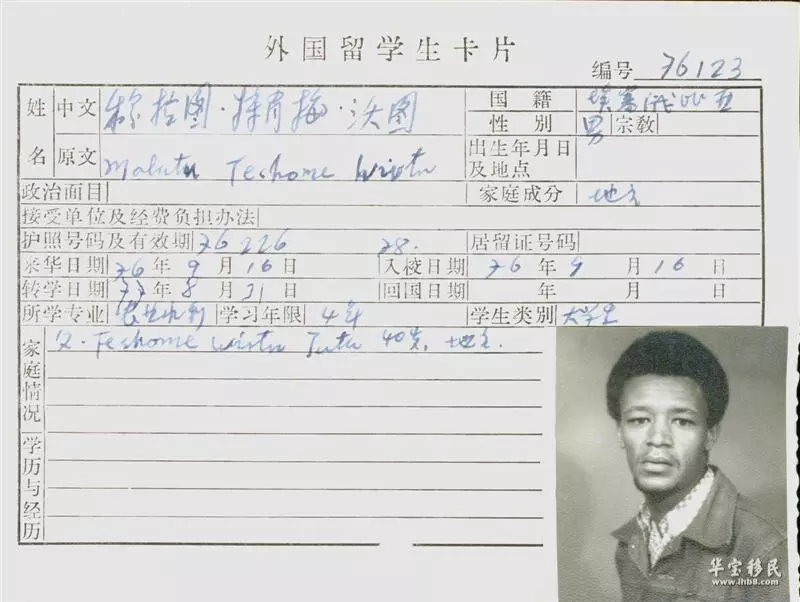 外国留学生卡片
编号 76123
姓名 中文 穆拉图·特肖梅·沃图 国籍 埃塞俄比亚
性别 男 宗教
原文 Mulatu Teshome Wirtu 出生年月日及地点
政治面目 家庭成分 地主
接受单位及经费负担办法
护照号码及有效期 76226 78. 居留证号码
来华日期 76年9月16日 入校日期 76年9月16日
转学日期 77年8月31日 回国日期 年 月 日
所学专业 学习年限 4年 学生类别 大学生
家庭情况 父·Teshome Wirtu 40岁, 地主.
学历与经历
华宝移民
www.ihb8.com